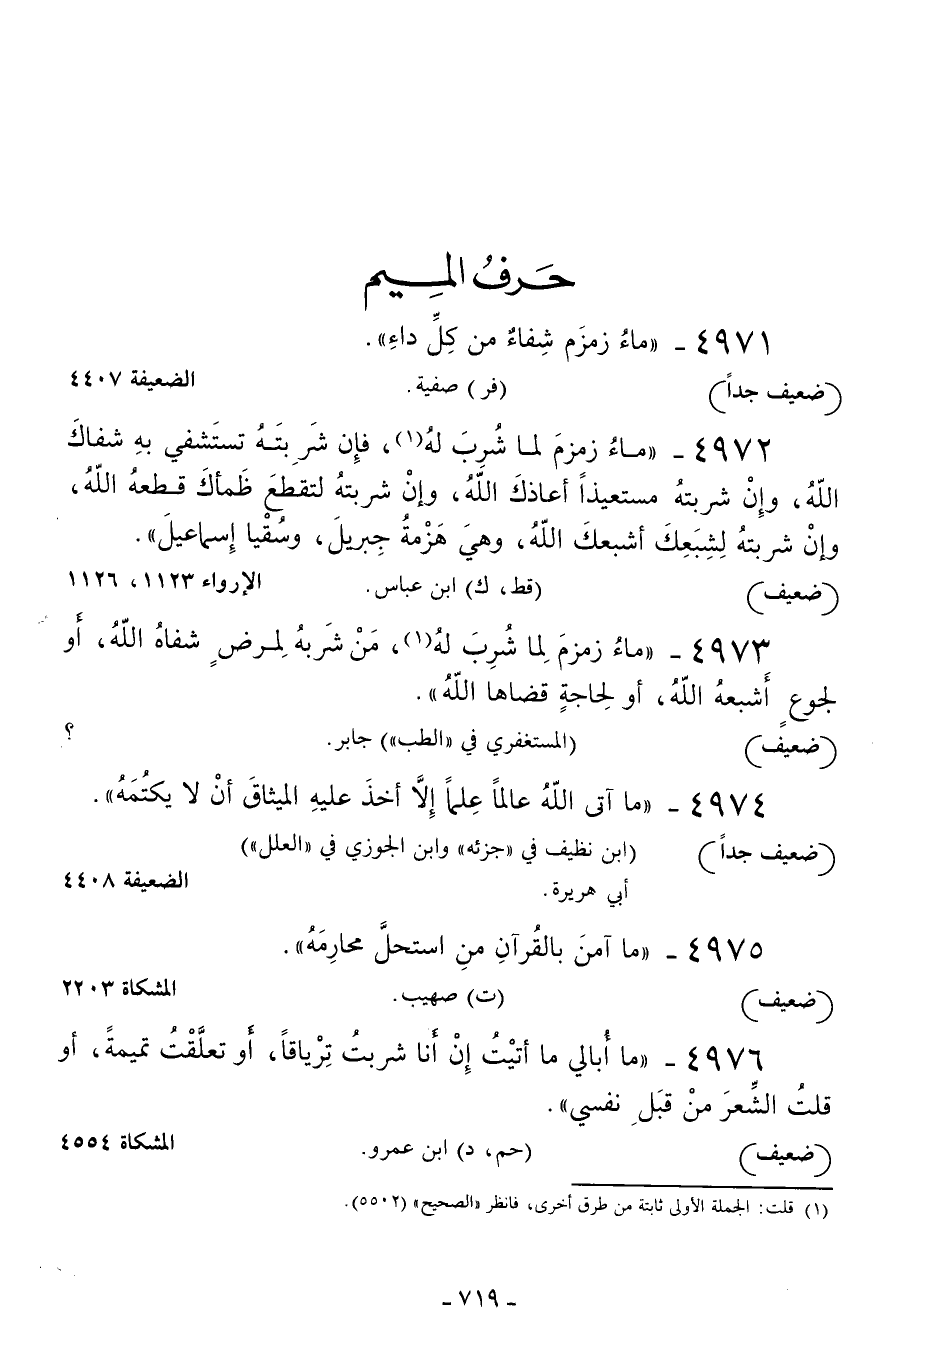 حَـرفُ الـمِـيـم
٤٩٧١ - «ماءُ زمزَم شِفاءٌ من كِلِّ داءٍ».
(ضعيف جداً) (فر) صفية. الضعيفة ٤٤٠٧
٤٩٧٢ - «مـاءُ زمزمَ لمـا شُرِبَ لهُ(١)، فإِن شَرِبتَـهُ تستَشفي بهِ شفاكَ
اللّهُ، وإِنْ شربتهُ مستعيذاً أعاذكَ اللّهُ، وإنْ شربتهُ لتقطعَ ظَمأكَ قـطعهُ اللّهُ،
وإنْ شربتهُ لِشِبَعِكَ أشبعكَ اللّهُ، وهيَ هَزْمةُ جِبريلَ، وسُقْيا إِسماعيلَ».
(ضعيف) (قط، ك) ابن عباس. الإرواء ١١٢٣، ١١٢٦
٤٩٧٣ - «ماءُ زمزمَ لِما شُرِبَ لهُ(١)، مَنْ شَربهُ لمـرضٍ شفاهُ اللّهُ، أَو
لجوعٍ أَشبعهُ اللّهُ، أو لحِاجةٍ قضاها اللّهُ».
(ضعيف) (المستغفري في «الطب») جابر. ؟
٤٩٧٤ - «ما آتى اللّهُ عالماً عِلماً إِلَّا أخذَ عليهِ الميثاقَ أنْ لا يكتُمَهُ».
(ضعيف جداً) (ابن نظيف في «جزئه» وابن الجوزي في «العلل»)
أبي هريرة. الضعيفة ٤٤٠٨
٤٩٧٥ - «ما آمنَ بالقُرآنِ منِ استحلَّ محارِمَهُ».
(ضعيف) (ت) صهيب. المشكاة ٢٢٠٣
٤٩٧٦ - «ما أُبالي ما أتيْتُ إِنْ أَنا شربتُ تِرْياقاً، أَو تعلَّقْتُ تميمةً، أو
قلتُ الشِّعرَ منْ قبَلِ نفسي».
(ضعيف) (حم، د) ابن عمرو. المشكاة ٤٥٥٤
(١) قلت: الجملة الأولى ثابتة من طرق أخرى، فانظر «الصحيح» (٥٥٠٢).
- ٧١٩ -